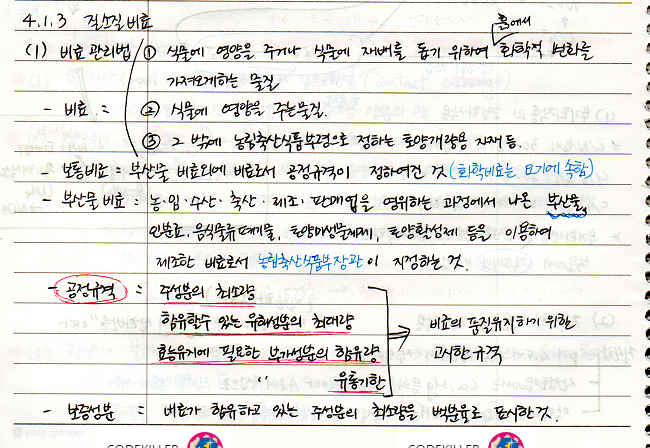 4.1.3 질소질 비료
흙에서
(1) 비료 관리법 ① 식물에 영양을 주거나 식물에 재배를 돕기 위하여 화학적 변화를
가져오게하는 물질
- 비료 = ② 식물에 영양을 주는물질.
③ 그 밖에 농림축산식품부령으로 정하는 토양개량용 자재 등.
- 보통비료 = 부산물 비료외에 비료로서 공정규격이 정하여진 것 (화학비료는 요기에 속함)
- 부산물 비료 = 농·임·수산·축산·제조·판매업을 영위하는 과정에서 나온 부산물,
인분뇨, 음식물류 폐기물, 토양미생물제제, 토양활성제 등을 이용하여
제조한 비료로서 농림축산식품부장관이 지정하는 것.
- 공정규격 = 주성분의 최소량
함유할수 있는 유해성분의 최대량 비료의 품질유지하기 위한
효능유지에 필요한 부가성분의 함유량 고시한 규격
" 유통기한
- 보증성분 = 비료가 함유하고 있는 주성분의 최소량을 백분율로 표시한 것.
CODEKILLER CODEKILLER